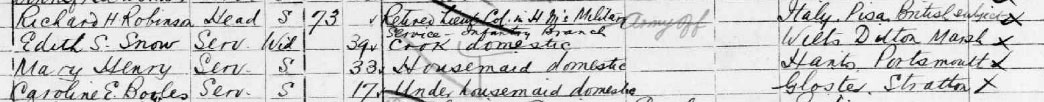 Richard H Robinson Head S 73 Retired Lieut Col. in H M's Military Service - Infantry Branch Army Off Italy. Pisa British subject X
Edith S. Snow Serv. Wid 39 Cook domestic Wilts Dilton Marsh X
Mary Henry Serv. S 33 Housemaid domestic Hants Portsmouth X
Caroline E. Boyles Serv. S 17 Under housemaid domestic Gloster. Stratton X